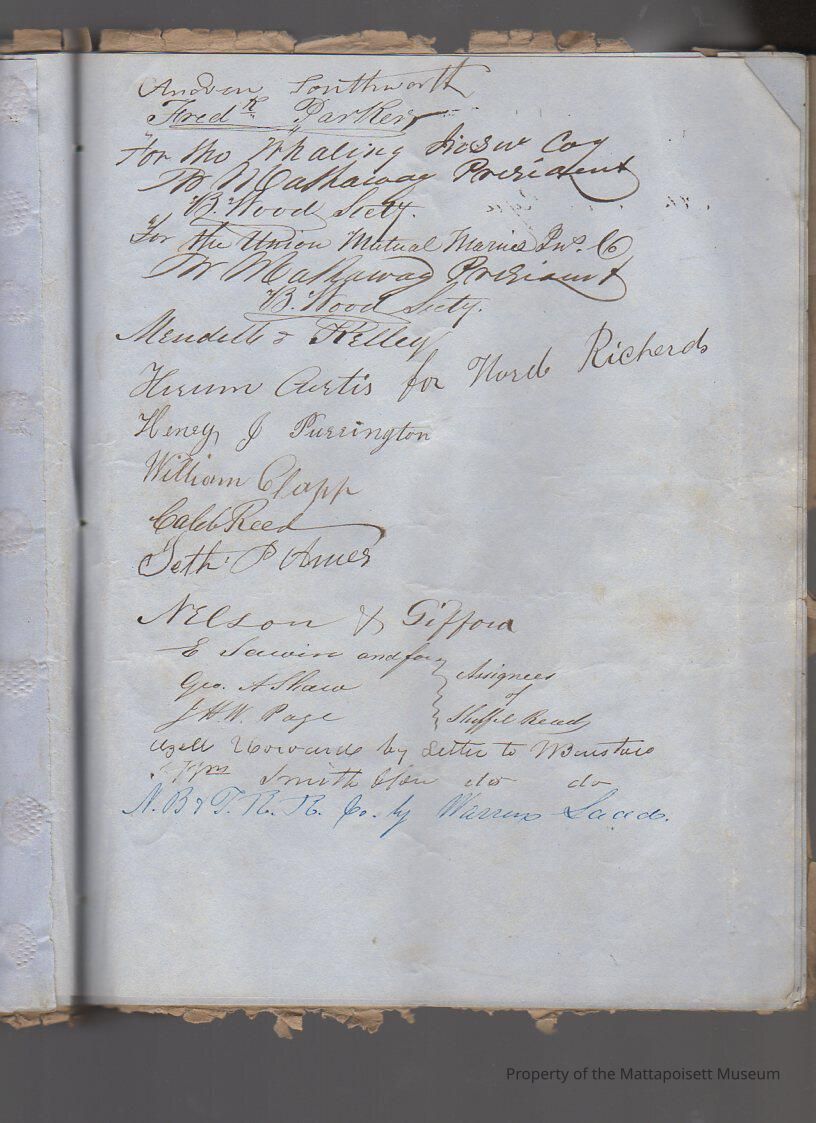 Andrew Southworth
Fredk Parker
For the Whaling Insur Coy
W Hathaway President
B. Wood Secty.
For the Union Mutual Marine Ins. Co
W Hathaway President
B. Wood Secty.
Mendell & Kelley
Hiram Curtis for Richards
Henry J Purrington
William Clapp
Caleb Reed
Seth P Ames
Nelson & Gifford
E Sawin and for
Geo. A Shaw
J H W. Page
Assignees
of
Read
by letter to
Smith do do
N. B & T. R. R. Co. by Warren Ladd.
Property of the Mattapoisett Museum